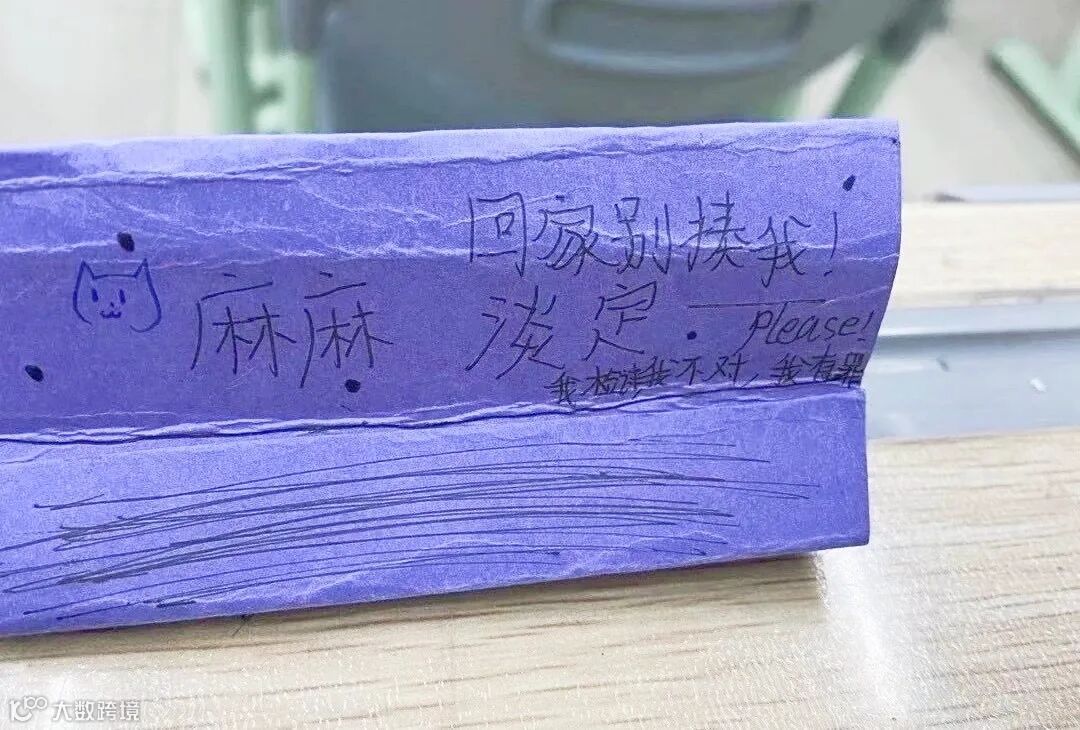 回家别揍我!
麻麻 淡定.
Please!
我检讨我不对,我有罪
大数跨境